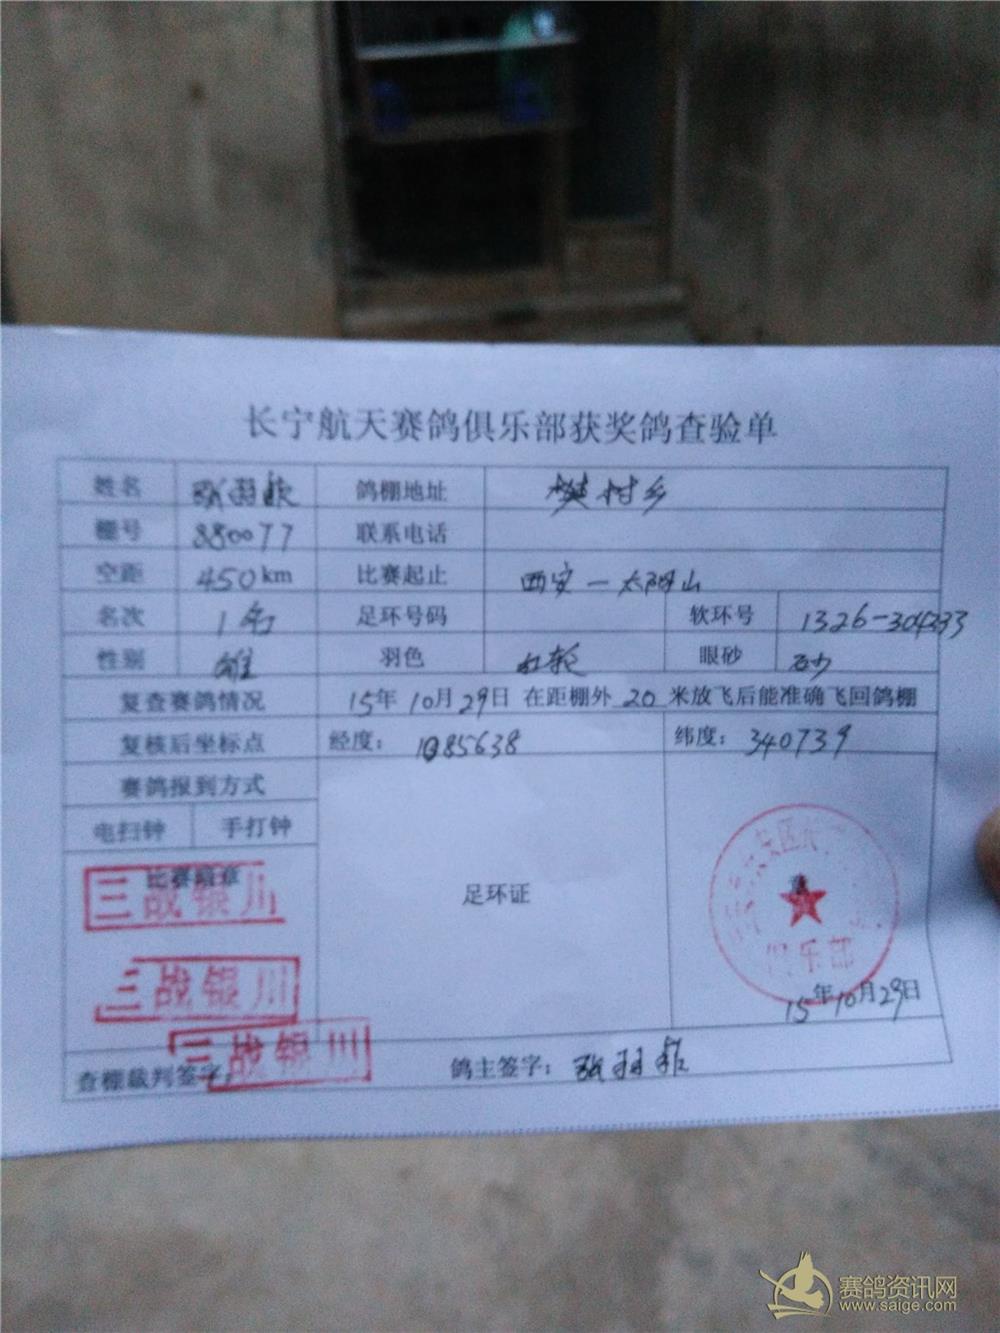 长宁航天赛鸽俱乐部获奖鸽查验单
姓名 鸽棚地址 樊村乡
棚号 880077 联系电话
空距 450km 比赛起止 西安—太阳山
名次 1名 足环号码 软环号 1326-304233
性别 雄 羽色 红轮 眼砂 砂
复查赛鸽情况 15年10月29日 在距棚外 20 米放飞后能准确飞回鸽棚
复核后坐标点 经度: 1085638 纬度: 340739
赛鸽报到方式
电扫钟 手打钟
比赛暗章
三战银川
足环证
章
俱乐部
三战银川
15年10月29日
三战银川
查棚裁判签字: 鸽主签字:
赛鸽资讯网
www.saige.com